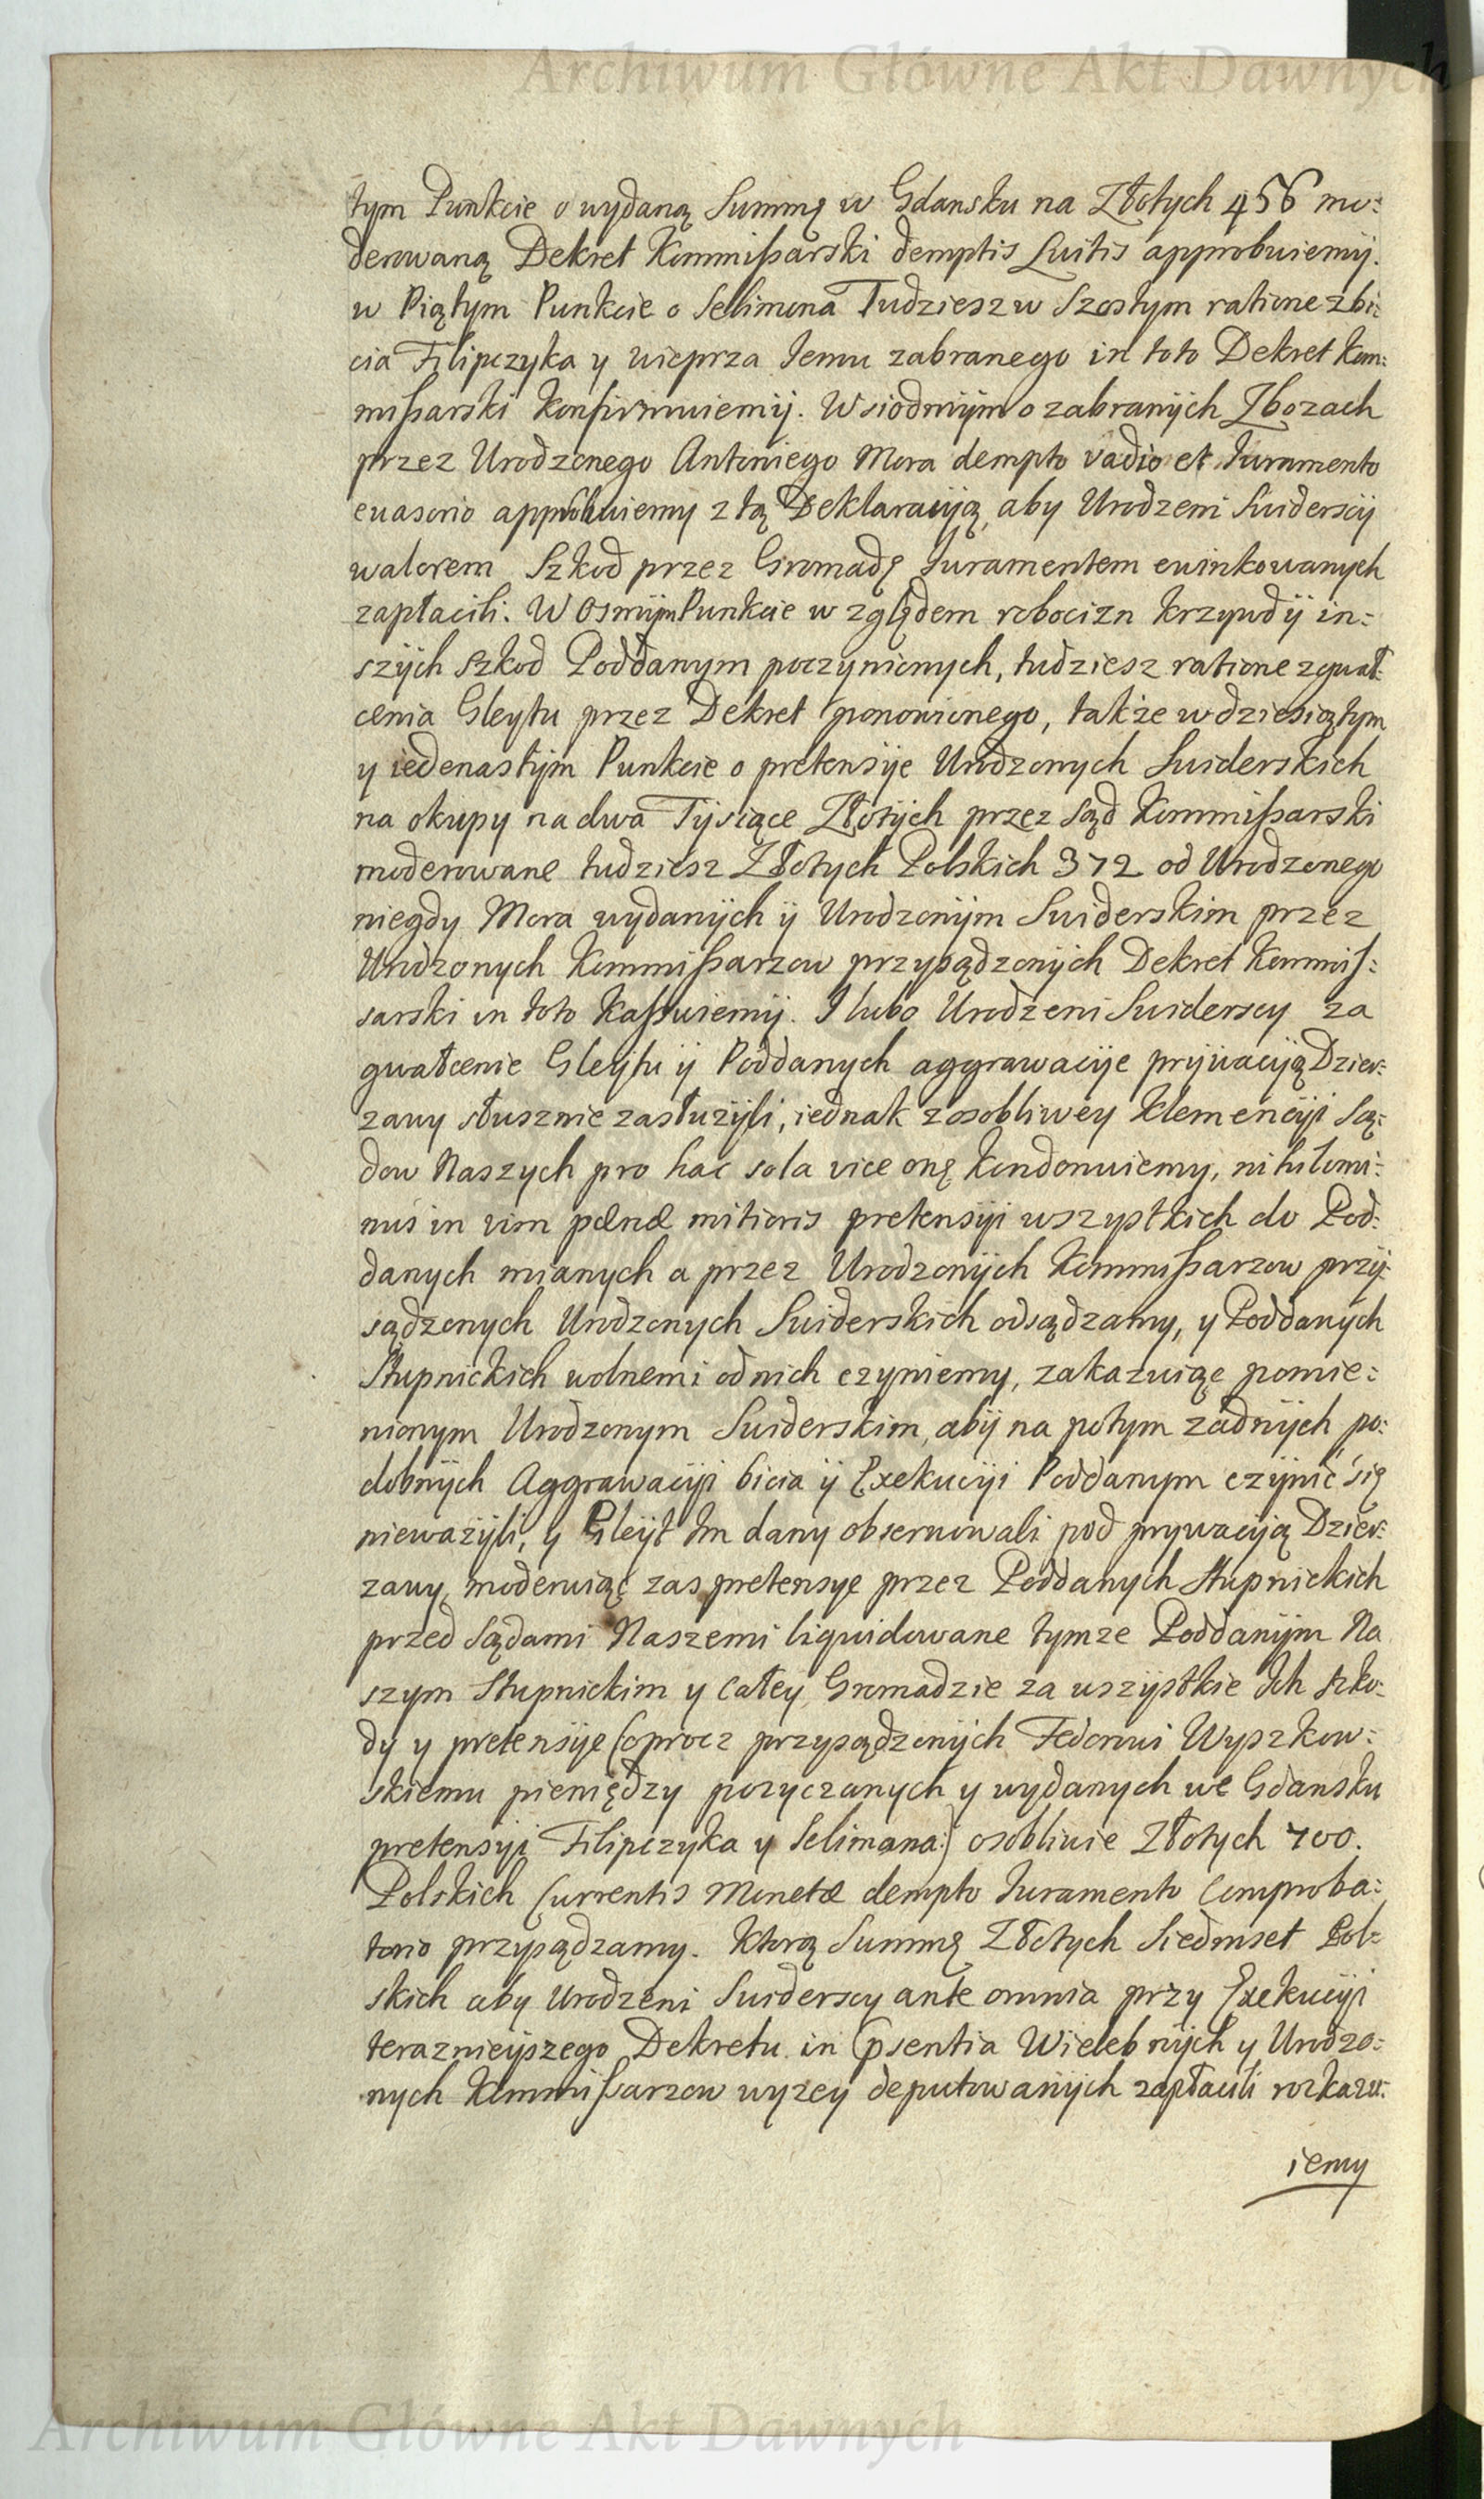 Archiwum Główne Akt Dawnych
tym Punkcie o wydaną Summę w Gdansku na Złotych 456 mo:
derowaną Dekret Kommißarski demptis Luitis approbuiemy.
w Piątym Punkcie o Selimona Tudziesz w Szostym ratione zbi:
cia Filipczyka y wieprza Jemu zabranego in toto Dekret Kom:
mißarski konfirmuiemij. W siodmijm o zabranijch Zbozach
przez Urodzonego Antoniego Mora dempto vadio et Juramento
euasorio approbuiemy z tą Deklaracyją, aby Urodzeni Suiderscij
walorem Szkod przez Gromadę Juramentem ewinkowanych
zapłacili. W Osmijm Punkcie w zględem robocizn krzywd ij in:
szijch szkod Poddanym poczynionych, tudziesz ratione zgwał:
cenia Gleytu przez Dekret ponowionego, także w dziesiątym
y iedenastijm Punkcie o pretensije Urodzonych Suiderskich
na okupy na dwa Tijsiące Złotijch przez Sąd Kommißarski
moderowane tudziesz Złotych Polskich 372 od Urodzonego
niegdy Mora wydanijch ij Urodzonijm Suiderskim przez
Urodzonych Kommißarzow przysądzonijch Dekret Kommis:
sarski in toto kassuiemij. I lubo Urodzeni Suiderscy za
gwałcenie Gleytu ij Poddanych aggrawacije prijwacyją Dzier:
zawy słusznie zasłużijli, iednak z osobliwey Klemenciji Są:
dow Naszych pro hac sola vice onę kondonuiemy, nihilomi:
nus in vim pœnæ mitioris pretensiji wszystkich do Pod:
danych mianych a przez Urodzonijch Kommißarzow przij:
sądzonych Urodzonych Suiderskich odsądzamy, y Poddanych
Stupnickich wolnemi od nich czyniemy, zakazuiąc pomie:
nionym Urodzonym Suiderskim, abij na potym zadnijch po:
dobnijch Aggrawacyji bicia ij Exekucyji Poddanym czijnić się
nieważijli, y Gleijt Im dany obserwowali pod prywacyją Dzier:
zawy, moderuiąc zas pretensye przez Poddanych Stupnickich
przed Sądami Naszemi liquidowane tymze Poddanijm Na
szym Stupnickim y Całey Gromadzie za wszijstkie Ich szko:
dy y pretensije (oprocz przysądzonijch Fedorowi Wyszkow:
skiemu pieniędzy pozyczanych y wydanych we Gdansku
pretensyi Filipczyka y Selimana:) osobliwie Złotych 700.
Polskich Currentis Monetæ dempto Juramento Comproba:
torio przysądzamy. Którą Summę Złotych Siedmset Pol:
skich aby Urodzeni Suiderscy ante omnia przy Exekucyji
terazniejszego Dekretu in Psentia Wielebnijch y Urodzo:
nych Kommißarzow wyzey deputowanijch zapłacili rozkazu:
iemy
Archiwum Główne Akt Dawnych